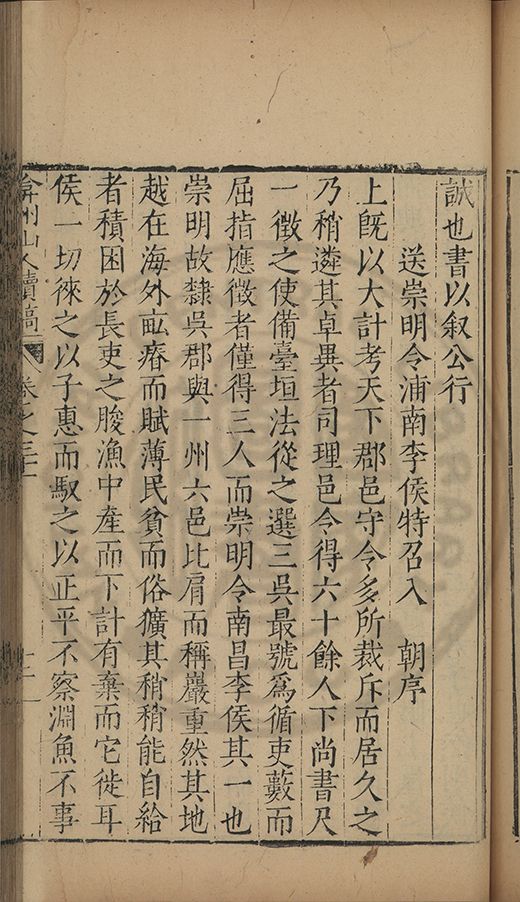 誠也書以叙公行
送崇明令浦南李侯特召入 朝序
上旣以大計考天下郡邑守令多所裁斥而居久之
乃稍遴其卓異者司理邑令得六十餘人下尚書尺
一徵之使備臺垣法從之選三吳最號爲循吏藪而
屈指應徵者僅得三人而崇明令南昌李侯其一也
崇明故隸吳郡與一州六邑比肩而稱嚴重然其地
越在海外畝瘠而賦薄民貧而俗獷其稍稍能自給
者積困於長吏之朘漁中產而下計有棄而它徙耳
侯一切徠之以子惠而馭之以正平不察淵魚不事
弇州山人續稿 卷之三十